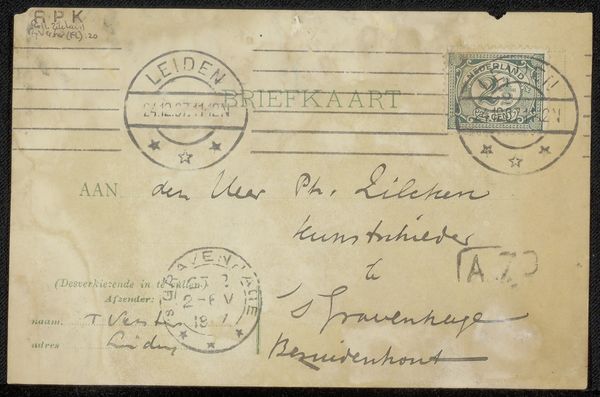 R P K
LEIDEN
24.12.07.11-12N
BRIEFKAART
NEDERLAND
2½
CENT
12N
AAN den Heer Ph. Zilcken
Kunstschilder
te
's Gravenhage
Bezuidenhout
A.7.
(Desverkiezende in te vullen)
Afzender:
naam. T Verst
adres Leiden
'SGRAVENHAGE
2-6 V